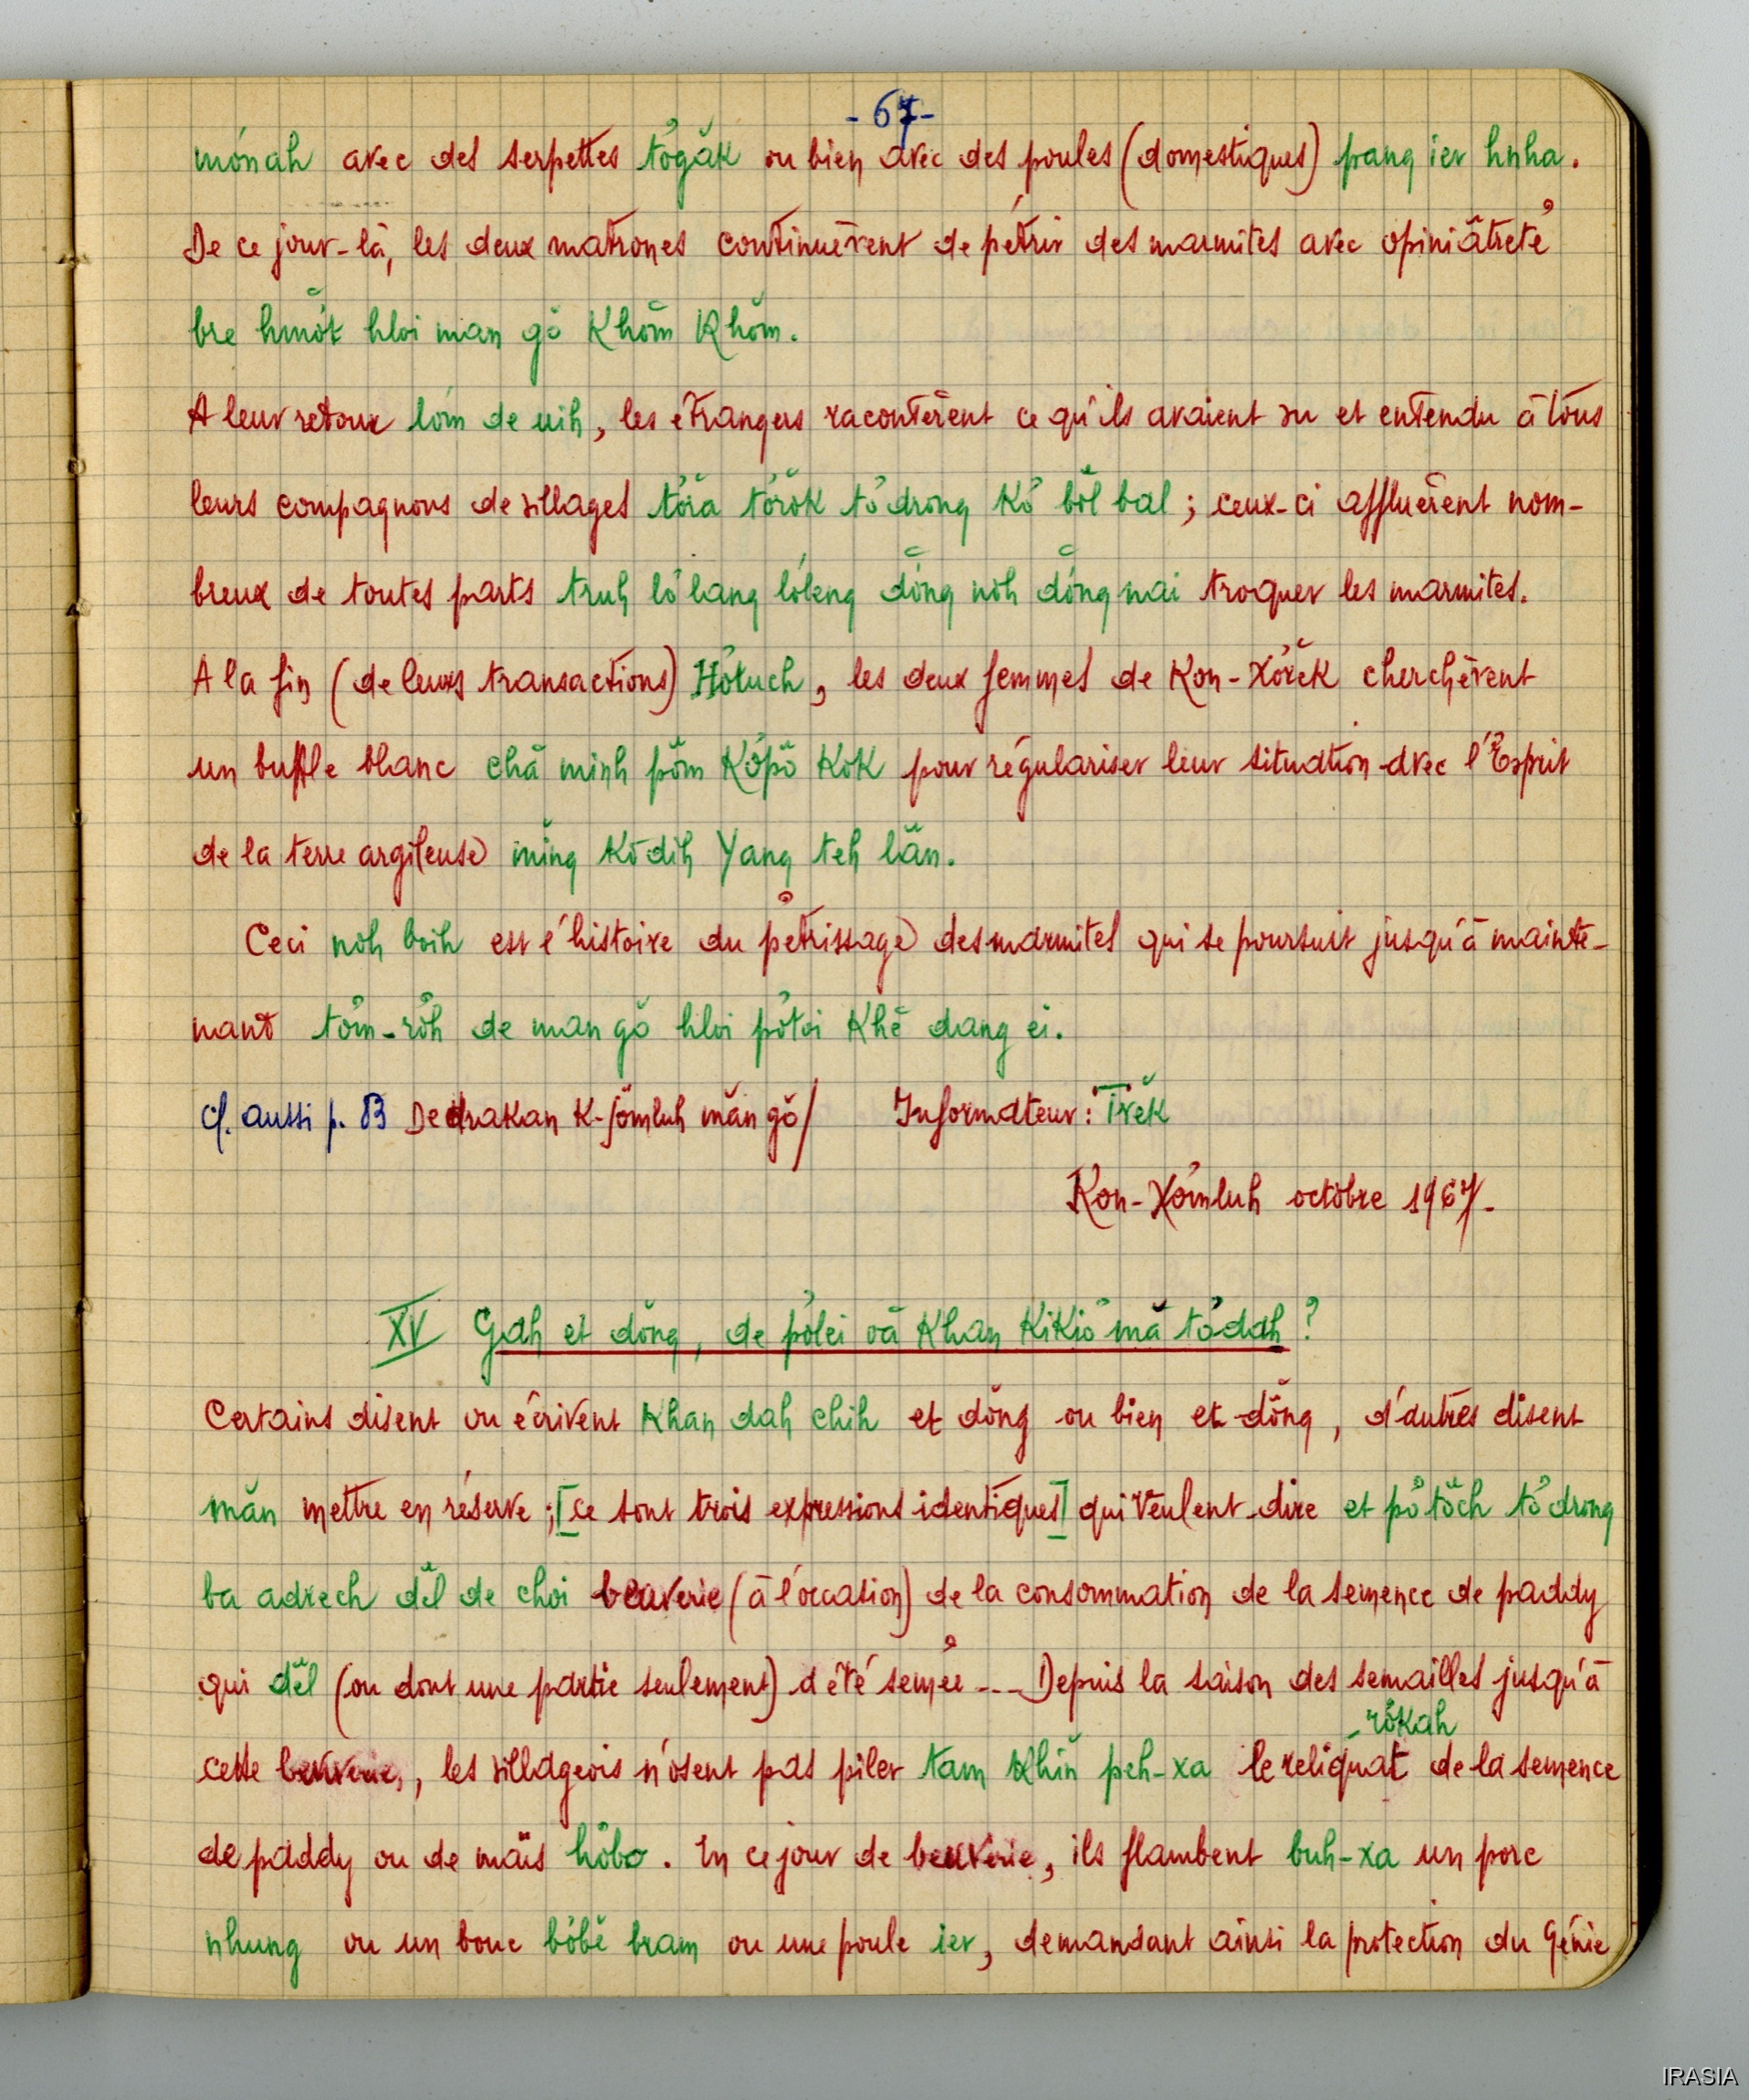 - 67 -
mơnah avec des serpettes tơgăk ou bien avec des poules (domestiques) pang ier hnha.
De ce jour-là, les deux matrones continuèrent de pétrir des marmites avec opiniâtreté
bre hmơ̆t hloi man gŏ Khŏm Khŏm.
A leur retour lơm de uih, les étrangers racontèrent ce qu'ils avaient vu et entendu à tous
leurs compagnons de villages tơră tơrŏk tơdrong kơ bŏl bal ; ceux-ci affluèrent nom-
breux de toutes parts truh lơlang lơleng dơ̆ng noh dơ̆ng nai troquer les marmites.
A la fin (de leurs transactions) Hơtuch, les deux femmes de Kon-Xơrĕk cherchèrent
un buffle blanc chă minh pôm kơpô kok pour régulariser leur situation avec l'Esprit
de la terre argileuse ming kơdih Yang teh lăn.
Ceci noh boih est l'histoire du pétrissage des marmites qui se poursuit jusqu'à mainte-
nant tơm-rơ̆h de man gŏ hloi pơtoi khĕ dang ei.
cf. aussi p. 83 De drakan K-Jơmluh măn gŏ/ Informateur : Trĕk
Kon-Xơmluh octobre 1967.
XV Gah et dŏng, de pơlei oă khan kikiơ mă tơdah ?
Certains disent ou écrivent khan dah chih et dŏng ou bien et dông, d'autres disent
măn mettre en réserve ; [ce sont trois expressions identiques] qui veulent dire et pơtŏch tơdrong
ba adrech dĕl de choi beuverie (à l'occasion) de la consommation de la semence de paddy
qui dĕl (ou dont une partie seulement) a été semée --- Depuis la saison des semailles jusqu'à
rơkah
cette beuverie, les villageois n'osent pas piler tam khin peh-xa le reliquat de la semence
de paddy ou de maïs hơbo. En ce jour de beuverie, ils flambent buh-xa un porc
nhung ou un bouc bơbĕ bram ou une poule ier, demandant ainsi la protection du Génie
IRASIA